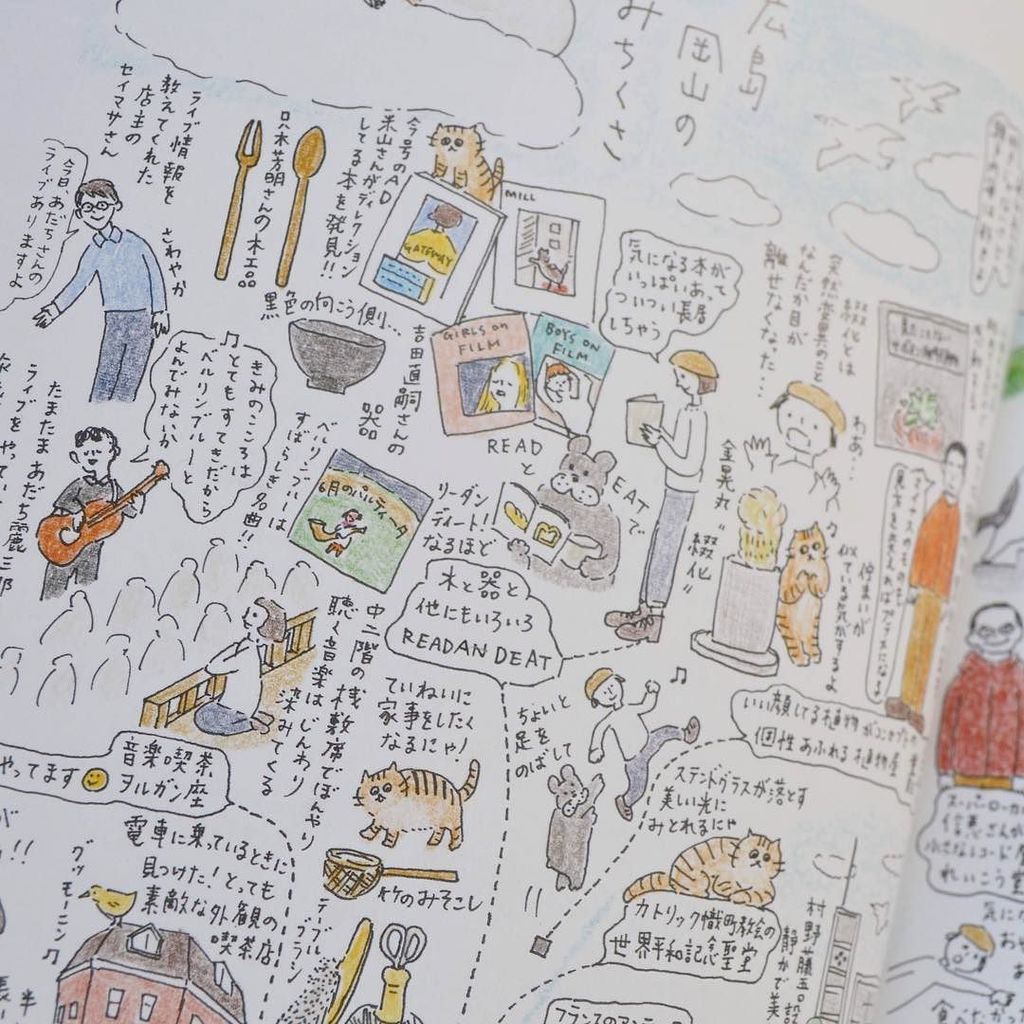 広島
岡山の
みちくさ
ライブ情報を
教えてくれた
店主の
セイマサさん
さわやか
今日、あだちさんの
ライブありますよ
只木芳明さんの木工品
今号のAD
米山さんがディレクション
してる本を発見!!
GATEWAY
MILL
気になる本が
いっぱいあって
ついつい長居
しちゃう
綴化とは
突然変異のこと
なんだか目が
離せなくなった…
わあ…
黒色の向こう側…
吉田直嗣さんの
器
GIRLS ON
FILM
BOYS ON
FILM
READ
と
EATで
リーダン
ディート!
なるほど
金晃丸
"綴化"
佇まいが
似ている気がするよ
♪きみのこころは
とてもすてきだから
ベルリンブルーと
よんでみないか
ベルリンブルーは
すばらしき名曲!!
6月のバルティータ
たまたま あだち麗三郎
ライブをやってい
本と器と
他にもいろいろ
READAN DEAT
中二階の桟敷席でぼんやり
聴く音楽はじんわり
染みてくる
音楽喫茶
ヲルガン座
やってます
ていねいに
家事をしたく
なるにゃ!
ちょいと
足を
のばして
いい顔してる植物がコンセプトの
個性あふれる植物屋
ステンドグラスが落とす
美しい光に
みとれるにゃ
カトリック幟町教会の
世界平和記念聖堂
村野藤吾設
静かで美
竹のみそこし
テーブル
ブラシ
電車に乗っているときに
見つけた!とっても
素敵な外観の
喫茶店
グッ
モーニン♪
スーパーローカ
信恵さんが
小さなレコード屋
れいこう堂
気にな
食べたかった
フランスのアンティー